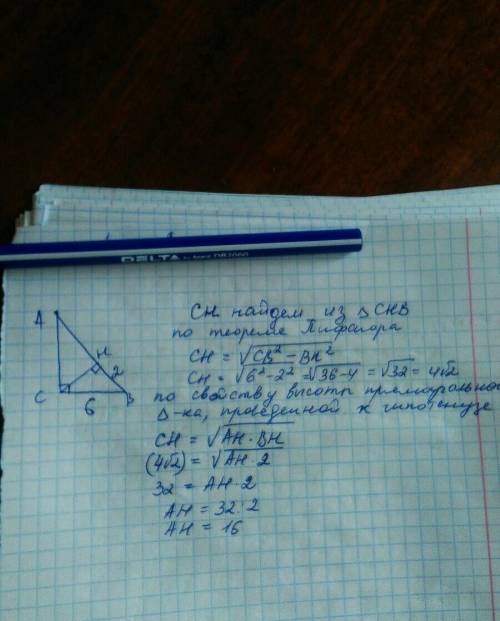 DELTA
A
H
2
C
6
B
CH найдем из △ CHB
по теореме Пифагора
CH = √CB² − BH²
CH = √6² − 2² = √36 − 4 = √32 = 4√2
по свойству высоты прямоугольного
△-ка, проведенной к гипотенузе
CH = √AH · BH
(4√2) = √AH 2
32 = AH · 2
AH = 32 : 2
AH = 16